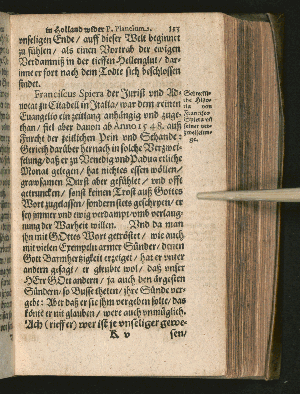 in Holland wider P. Plancium. 153
vnseligen Ende / auff dieser Welt beginnet
zu fühlen / als einen Vortrab der ewigen
Verdamniß in der tieffen Hellenglut / dar-
inne er fort nach dem Todte sich beschlossen
findet.
Franciscus Spiera der Juriß vnd Ad-
vocat zu Citadell in Italia / war dem reinen
Evangelio ein zeitlang anhängig vnd zuge-
than / fiel aber davon ab Anno 1548. auß
Furcht der zeitlichen Pein vnd Schande:
Gerieth darüber hernach in solche Verzwei-
felung / daß er zu Venedig vnd Padua etliche
Monat gelegen / hat nichtes essen wöllen /
grawsamen Durst aber gefühlet / vnd offt
getruncken / sonst keinen Trost auß Gottes
Wort zugelassen / sondern stets geschryen / er
sey jmmer vnd ewig verdampt / vmb verlaug-
nung der Warheit willen. Vnd da man
jhn mit GOttes Wort getröstet / wie auch
mit vielen Exempeln armer Sünder / denen
Gott Barmhertzigkeit erzeiget / hat er vnter
andern gesagt / er gleubte wol / daß vnser
HErr GOtt andern / ja auch den ärgesten
Sündern / so Busse theten / jhre Sünde ver-
gebe: Aber daß er sie jhm vergeben solte / das
könte er nit glauben / were auch vnmüglich.
Ach (rieff er) wer ist je vnseliger gewe-
K v sen /
Histo-
ria von
Francisco
Spiera
seiner ver-